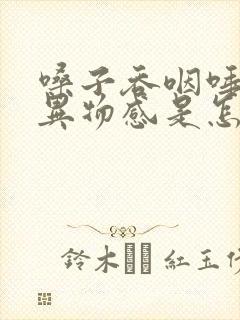 嗓子吞咽唾
异物感是怎
鈴木 紅玉